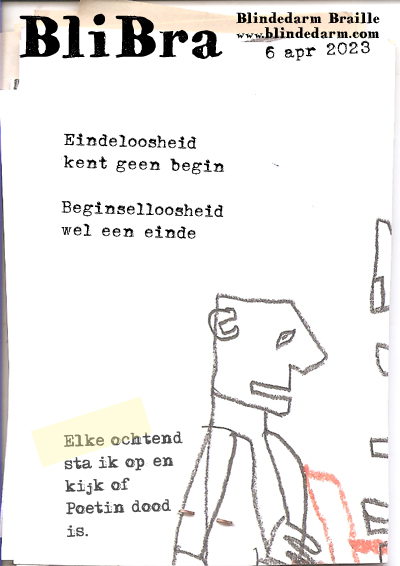 BliBra
Blindedarm Braille
www.blindedarm.com
6 apr 2023
Eindeloosheid
kent geen begin
Beginselloosheid
wel een einde
Elke ochtend
sta ik op en
kijk of
Poetin dood
is.